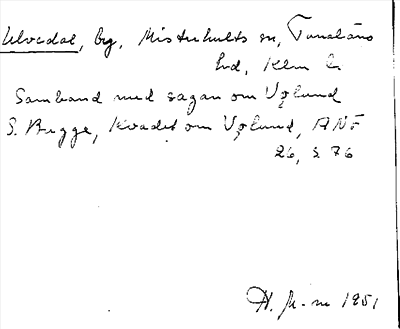 Ulvedal, by, Misterhults sn, Tunaläns
hd, Klm l.
Samband med sagan om Vǫlund
S. Bugge, Kvadet om Vǫlund, ANF
26, s 76
H. 1951